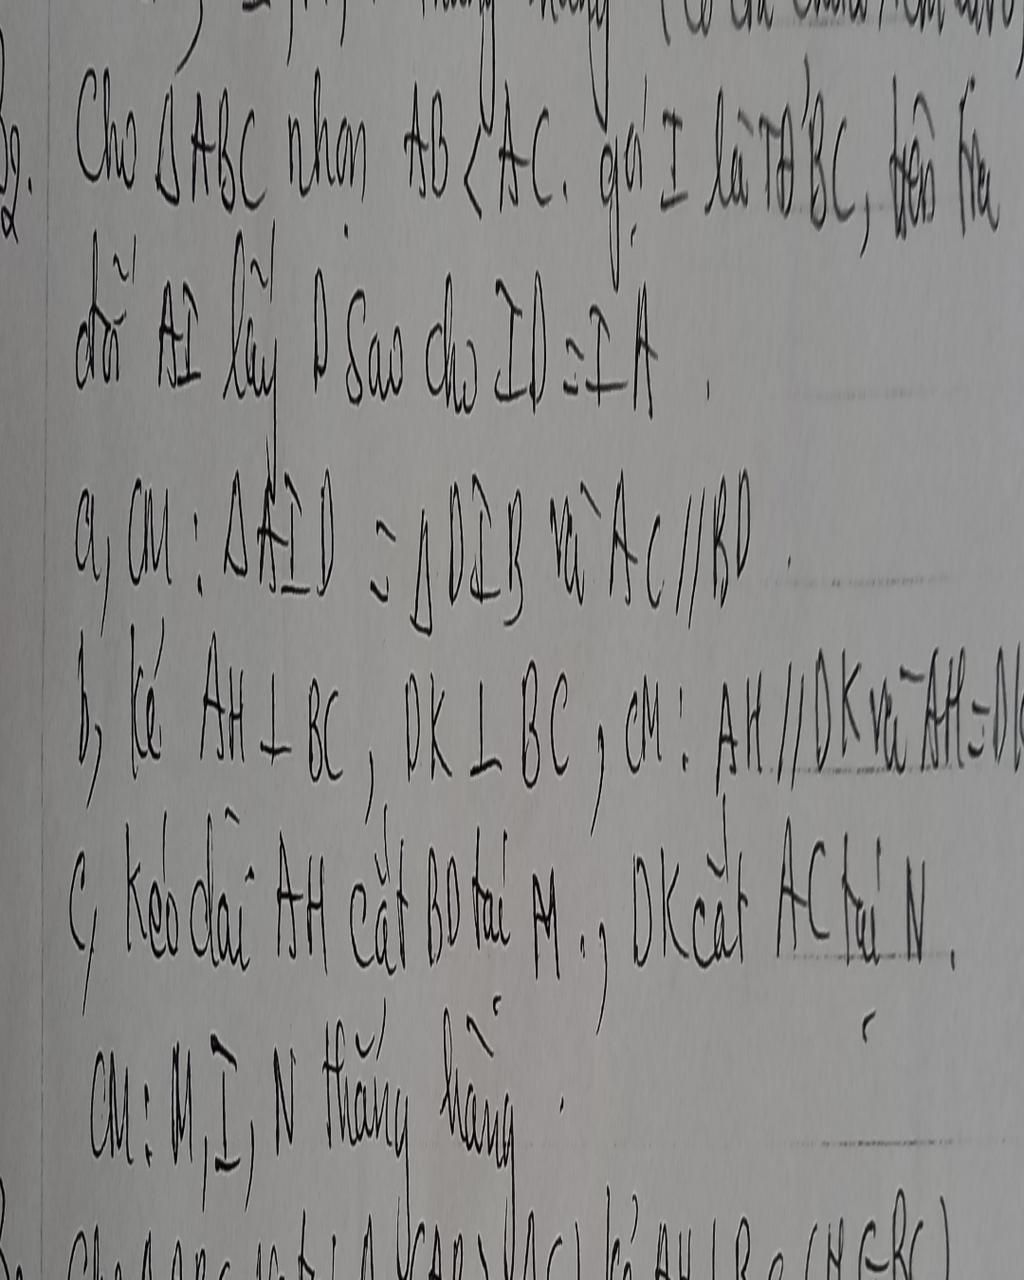 B2. Cho ΔABC nhọn AB < AC. gọi I là TĐ BC, trên tia
đối AI lấy D sao cho ID = IA.
a, CM: ΔAID = ΔDIB và AC // BD.
b, kẻ AH ⊥ BC, DK ⊥ BC, CM: AH // DK và AH = DK
c, kéo dài AH cắt BD tại M., DK cắt AC tại N.
CM: M, I, N thẳng hàng.
kẻ AH ⊥ BC (H ∈ BC)